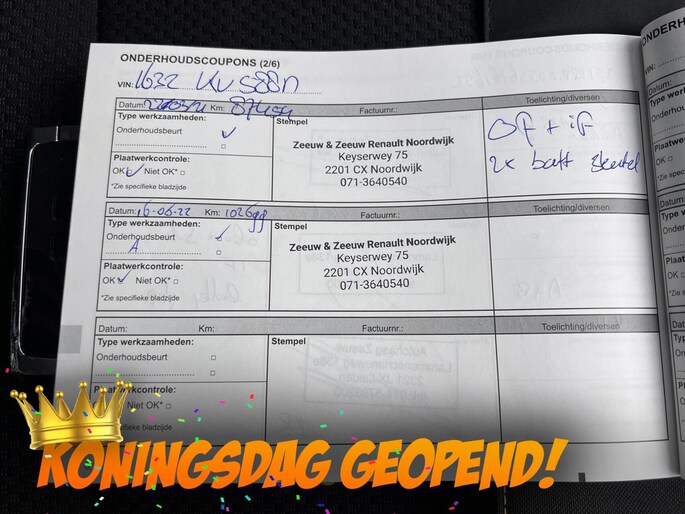 ONDERHOUDSCOUPONS (2/6)
VIN: 1632
Datum: Km: Factuurnr.: Toelichting/diversen
Type werkzaamheden: Stempel
Onderhoudsbeurt
Zeeuw & Zeeuw Renault Noordwijk
Keyserwey 75
2201 CX Noordwijk
071-3640540
Plaatwerkcontrole:
OK Niet OK*
*Zie specifieke bladzijde
OF + iF
2x batt sleutel
Datum: 16-06-22 Km: Factuurnr.: Toelichting/diversen
Type werkzaamheden: Stempel
Onderhoudsbeurt
A
Zeeuw & Zeeuw Renault Noordwijk
Keyserwey 75
2201 CX Noordwijk
071-3640540
Plaatwerkcontrole:
OK Niet OK*
*Zie specifieke bladzijde
Datum: Km: Factuurnr.: Toelichting/diversen
Type werkzaamheden: Stempel
Onderhoudsbeurt
Plaatwerkcontrole:
Niet OK*
bladzijde
KONINGSDAG GEOPEND!